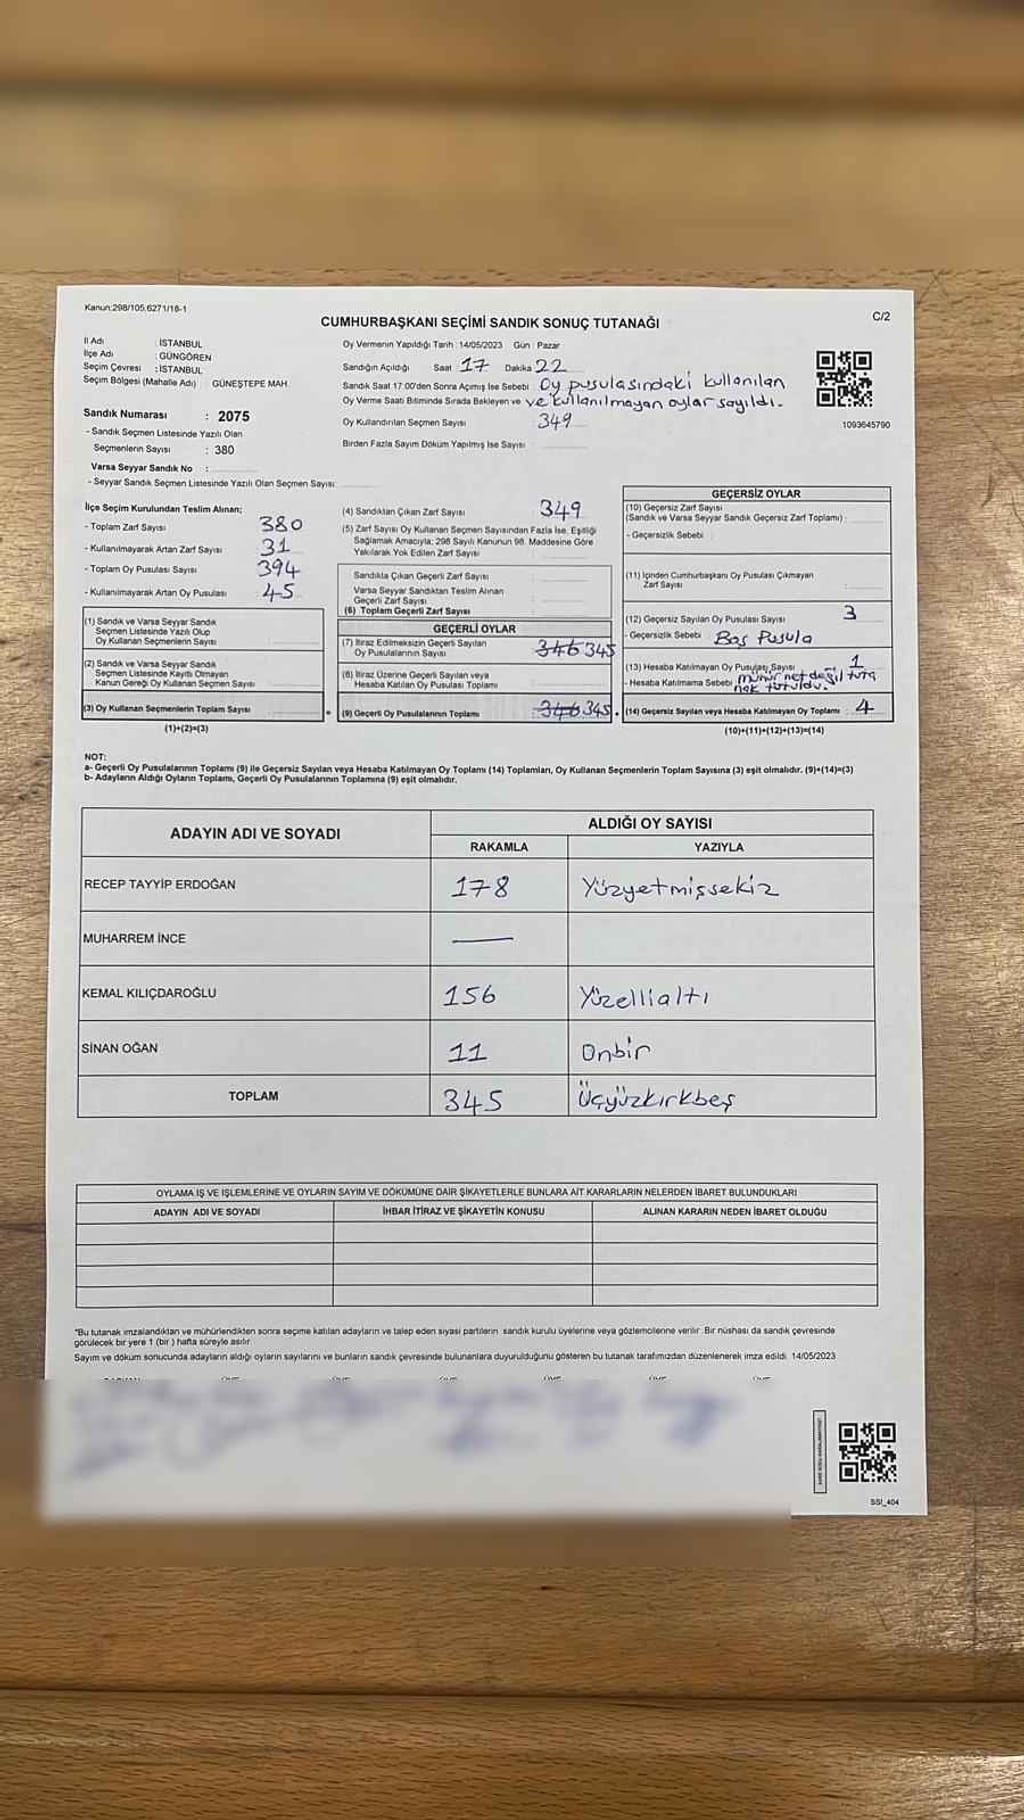 Kanun:298/105.6271/18-1
C/2
CUMHURBAŞKANI SEÇİMİ SANDIK SONUÇ TUTANAĞI
İl Adı : İSTANBUL
İlçe Adı : GÜNGÖREN
Seçim Çevresi : İSTANBUL
Seçim Bölgesi (Mahalle Adı) GÜNEŞTEPE MAH.
Sandık Numarası : 2075
- Sandık Seçmen Listesinde Yazılı Olan
Seçmenlerin Sayısı : 380
Varsa Seyyar Sandık No :
- Seyyar Sandık Seçmen Listesinde Yazılı Olan Seçmen Sayısı:
Oy Vermenin Yapıldığı Tarih : 14/05/2023 Gün : Pazar
Sandığın Açıldığı Saat 17 Dakika 22
Sandık Saat 17:00'den Sonra Açımış İse Sebebi Oy pusulasındaki kullanılan
Oy Verme Saati Bitiminde Sırada Bekleyen ve ve kullanılmayan oylar sayıldı.
Oy Kullandırılan Seçmen Sayısı 349
Birden Fazla Sayım Döküm Yapılmış İse Sayısı
1093645790
İlçe Seçim Kurulundan Teslim Alınan;
- Toplam Zarf Sayısı 380
- Kullanılmayarak Artan Zarf Sayısı 31
- Toplam Oy Pusulası Sayısı 394
- Kullanılmayarak Artan Oy Pusulası 45
(1) Sandık ve Varsa Seyyar Sandık
Seçmen Listesinde Yazılı Olup
Oy Kullanan Seçmenlerin Sayısı
(2) Sandık ve Varsa Seyyar Sandık
Seçmen Listesinde Kayıtlı Olmayan
Kanun Gereği Oy Kullanan Seçmen Sayısı
(3) Oy Kullanan Seçmenlerin Toplam Sayısı
(1)+(2)=(3)
(4) Sandıktan Çıkan Zarf Sayısı 349
(5) Zarf Sayısı Oy Kullanan Seçmen Sayısından Fazla İse, Eşitliği
Sağlamak Amacıyla; 298 Sayılı Kanunun 98. Maddesine Göre
Yakılarak Yok Edilen Zarf Sayısı
Sandıkta Çıkan Geçerli Zarf Sayısı
Varsa Seyyar Sandıktan Teslim Alınan
Geçerli Zarf Sayısı
(6) Toplam Geçerli Zarf Sayısı
GEÇERLİ OYLAR
(7) İtiraz Edilmeksizin Geçerli Sayılan
Oy Pusulalarının Sayısı 346 345
(8) İtiraz Üzerine Geçerli Sayılan veya
Hesaba Katılan Oy Pusulası Toplamı
= (9) Geçerli Oy Pusulalarının Toplamı 346 345 +
GEÇERSİZ OYLAR
(10) Geçersiz Zarf Sayısı
(Sandık ve Varsa Seyyar Sandık Geçersiz Zarf Toplamı) :
- Geçersizlik Sebebi :
(11) İçinden Cumhurbaşkanı Oy Pusulası Çıkmayan
Zarf Sayısı :
(12) Geçersiz Sayılan Oy Pusulası Sayısı : 3
- Geçersizlik Sebebi Boş Pusula
(13) Hesaba Katılmayan Oy Pusulası Sayısı : 1
- Hesaba Katılmama Sebebi mühür net değil tuta
nak tutuldu.
(14) Geçersiz Sayılan veya Hesaba Katılmayan Oy Toplamı : 4
(10)+(11)+(12)+(13)=(14)
NOT:
a- Geçerli Oy Pusulalarının Toplamı (9) ile Geçersiz Sayılan veya Hesaba Katılmayan Oy Toplamı (14) Toplamları, Oy Kullanan Seçmenlerin Toplam Sayısına (3) eşit olmalıdır. (9)+(14)=(3)
b- Adayların Aldığı Oyların Toplamı, Geçerli Oy Pusulalarının Toplamına (9) eşit olmalıdır.
ADAYIN ADI VE SOYADI
ALDIĞI OY SAYISI
RAKAMLA YAZIYLA
RECEP TAYYİP ERDOĞAN 178 Yüzyetmişsekiz
MUHARREM İNCE —
KEMAL KILIÇDAROĞLU 156 Yüzellialtı
SİNAN OĞAN 11 Onbir
TOPLAM 345 Üçyüzkırkbeş
OYLAMA İŞ VE İŞLEMLERİNE VE OYLARIN SAYIM VE DÖKÜMÜNE DAİR ŞİKAYETLERLE BUNLARA AİT KARARLARIN NELERDEN İBARET BULUNDUKLARI
ADAYIN ADI VE SOYADI İHBAR İTİRAZ VE ŞİKAYETİN KONUSU ALINAN KARARIN NEDEN İBARET OLDUĞU
*Bu tutanak imzalandıktan ve mühürlendikten sonra seçime katılan adayların ve talep eden siyasi partilerin sandık kurulu üyelerine veya gözlemcilerine verilir. Bir nüshası da sandık çevresinde
görülecek bir yere 1 (bir) hafta süreyle asılır.
Sayım ve döküm sonucunda adayların aldığı oyların sayılarını ve bunların sandık çevresinde bulunanlara duyurulduğunu gösteren bu tutanak tarafımızdan düzenlenerek imza edildi. 14/05/2023
SSI_404